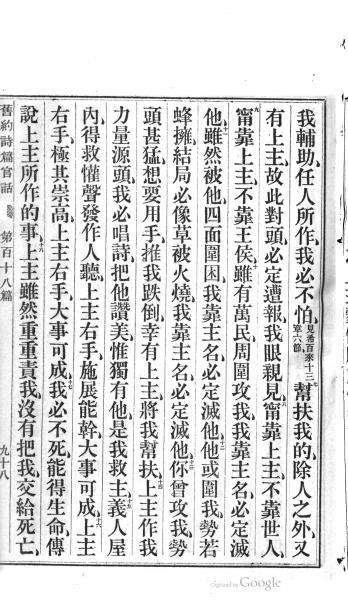 我輔助、任人所作、我必不怕、見希百來十三章六節七幫扶我的、除人之外、又
有上主、故此對頭必定遭報、我眼親見、八甯靠上主、不靠世人、
九甯靠上主、不靠王侯、十雖有萬民周圍攻我、我靠主名、必定滅
他、十一雖然被他四面圍困、我靠主名、必定滅他、十二他或圍我、勢若
蜂擁、結局必像草被火燒、我靠主名、必定滅他、十三你曾攻我、勢
頭甚猛、想要用手推我跌倒、幸有上主將我幫扶、十四上主作我
力量源頭、我必唱詩把他讚美、惟獨有他是我救主、十五義人屋
內、得救懽聲、發作人聽、上主右手施展能幹、大事可成、十六上主
右手極其崇高、上主右手大事可成、十七我必不死、能得生命、傳
說上主所作的事、十八上主雖然重重責我、沒有把我交給死亡、
舊約詩篇官話 第百十八篇 九十八
Digitized by Google